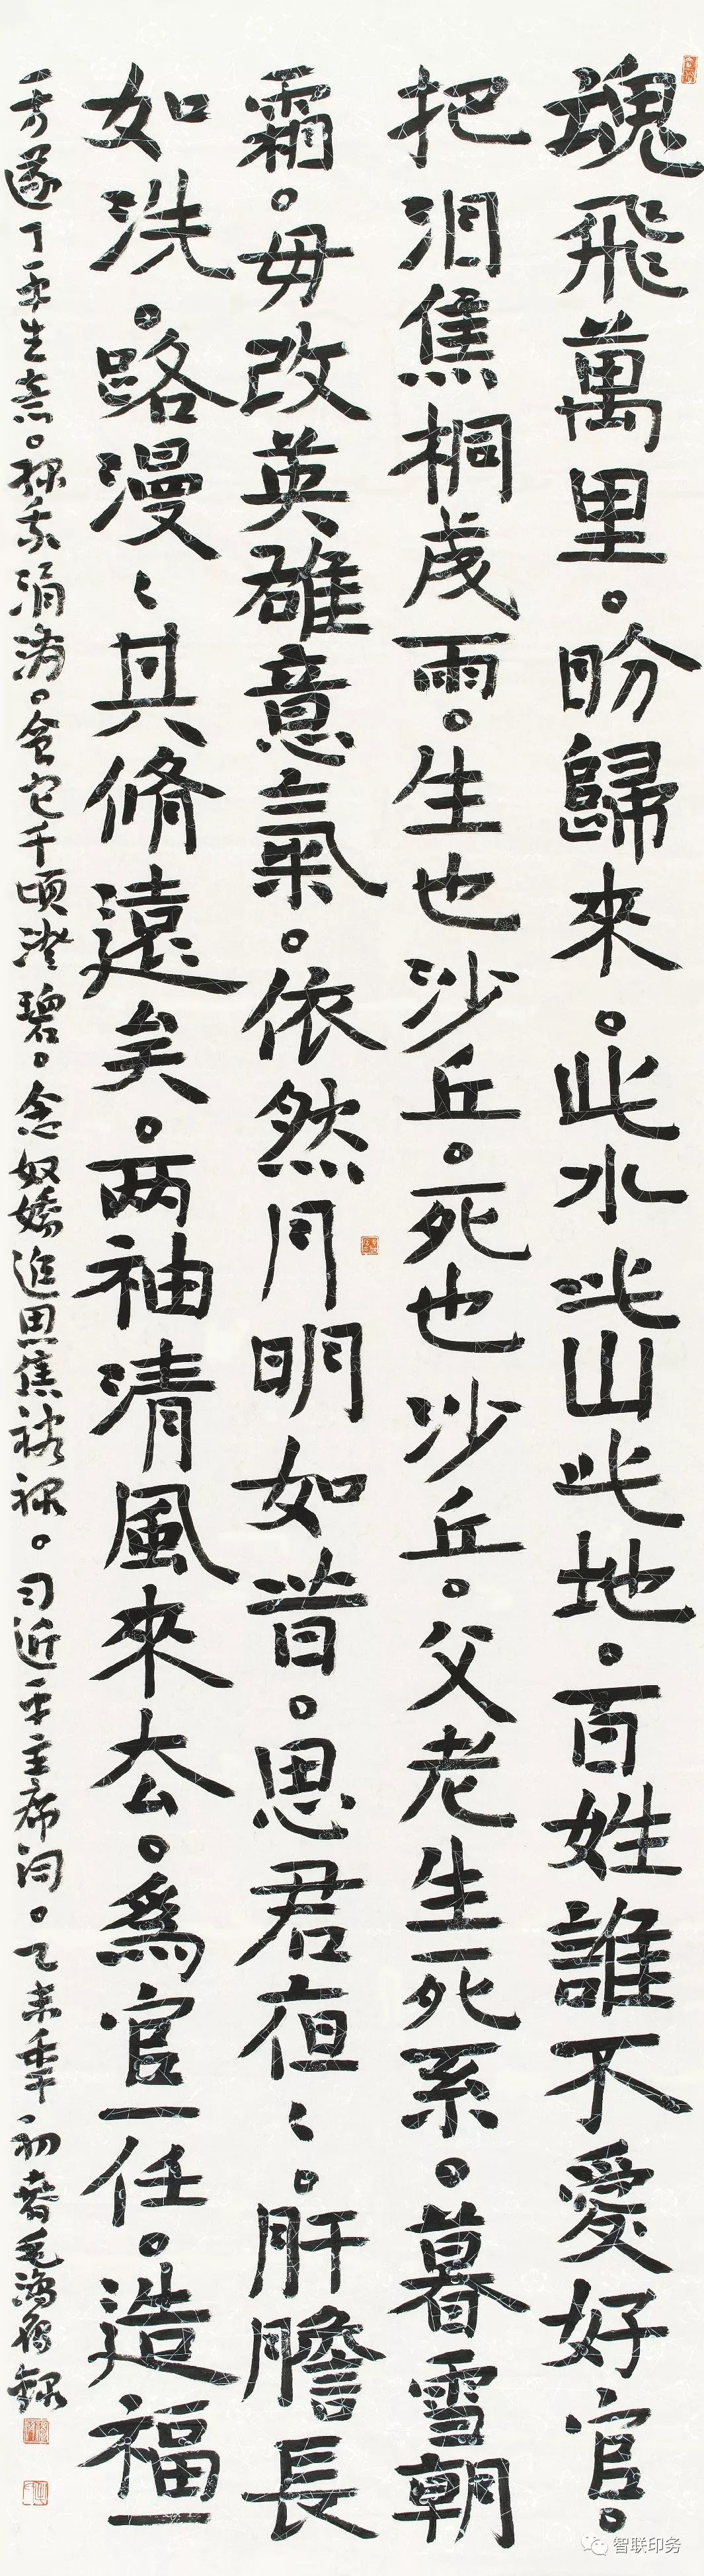 魂飛萬里。盼歸來。此水此山此地。百姓誰不愛好官。
把泪焦桐成雨。生也沙丘。死也沙丘。父老生死系。暮雪朝
霜。毋改英雄意氣。依然月明如昔。思君夜〻。肝膽長
如洗。路漫〻其脩遠矣。两袖清風來去。爲官一任。造福一
方。遂了平生意。绿我涓滴。會它千頃澄碧。念奴嬌追思焦裕禄。习近平主席词。乙未年初春毛海录
智联印务